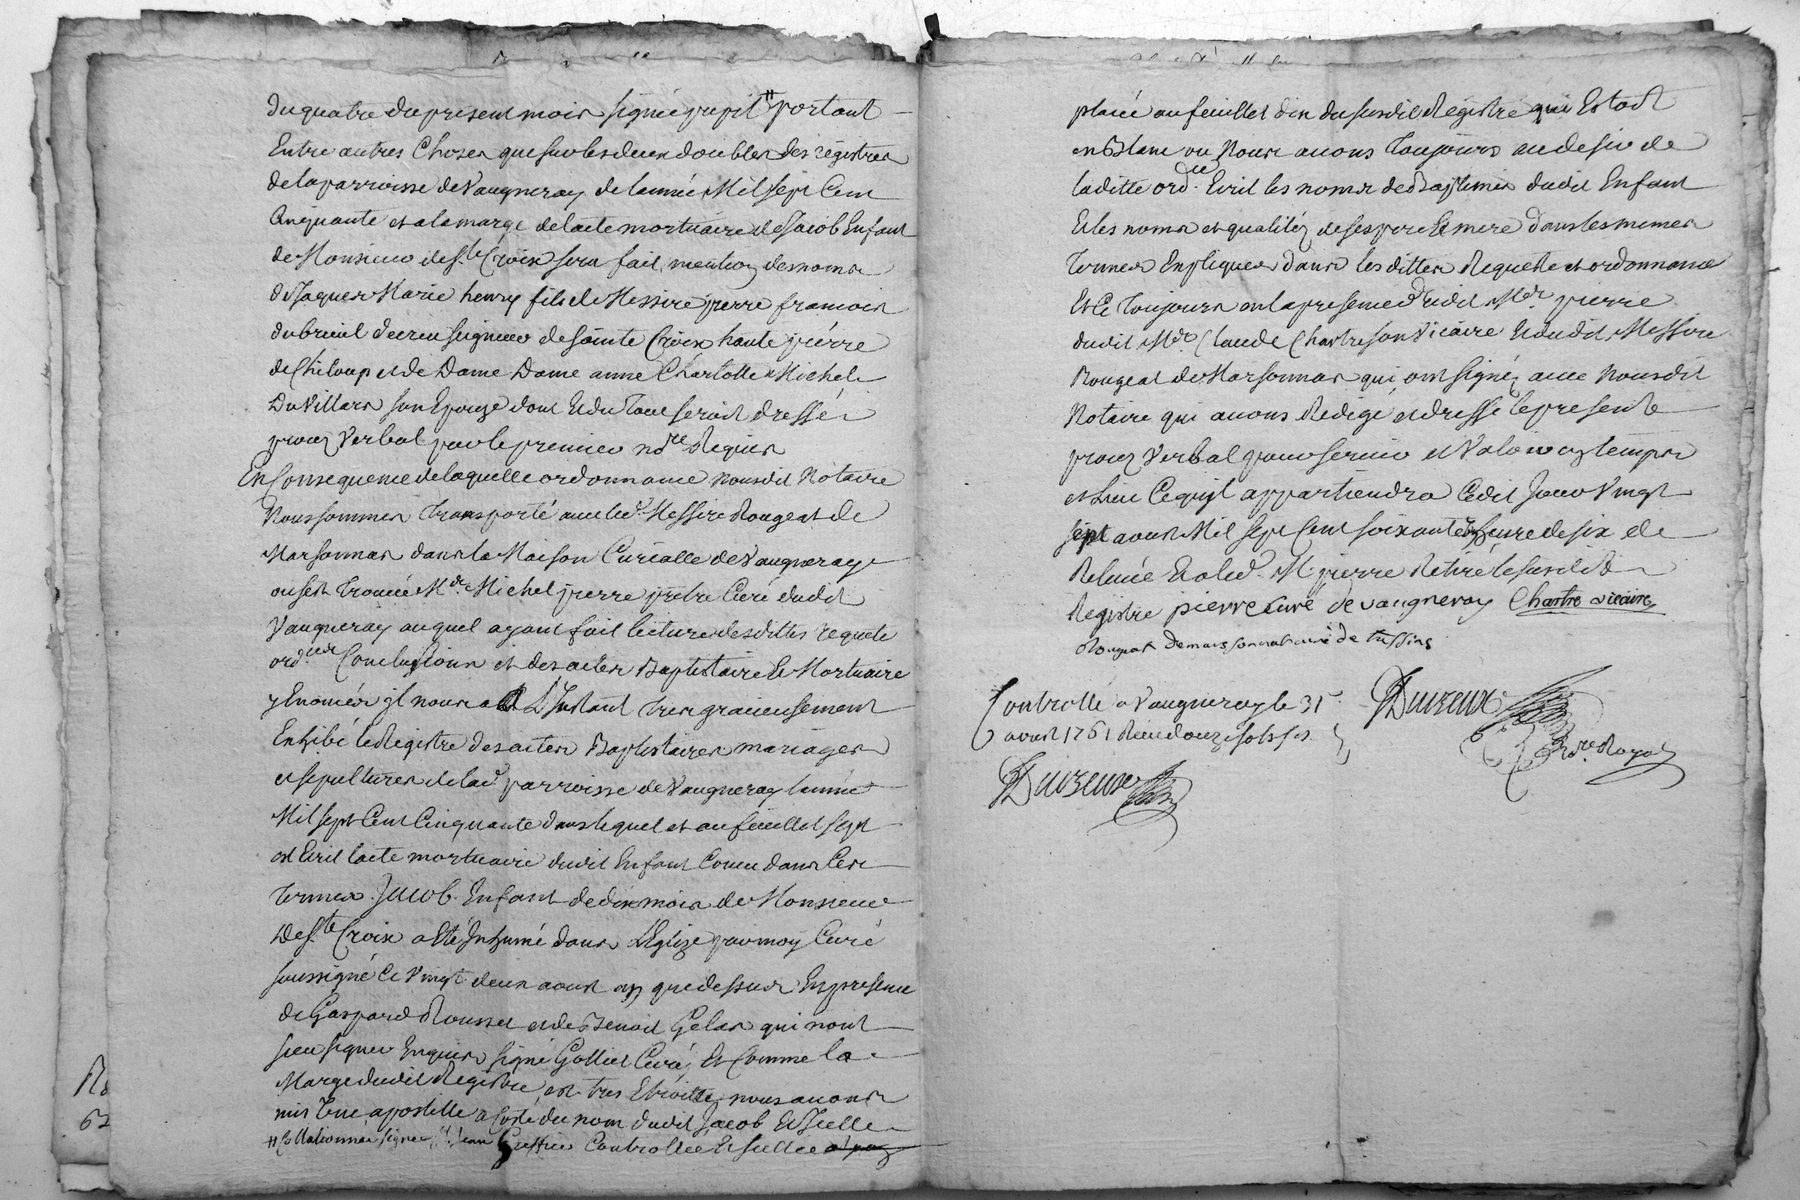 Du quatre du present mois signé pupil # portant
Entre autres Choses que sur les deux doubles des régistres
de la parroisse de Vaugneray de l'année Mil sept Cent
Cinquante et a la marge de l'acte mortuaire de Jacob Enfant
de Monsieur de Ste Croix sera fait mention des noms
de Jaques Marie henry fils de Messire pierre francois
dubreuil seigneur de Sainte Croix haute pierre
de Chiloup et de Dame Dame anne Charlotte Michel
Du Villars son Epouze dont Et du Tout seroit dressé
procez Verbal par le premier nore Requis
En Consequence de laquelle ordonnance nousdit Notaire
Nous sommes Transporté avec led. Messire Rougeat de
Marsonnas dans la Maison Curialle de Vaugneray
ou s'est Trouvé Mre Michel pierre pretre Curé dudit
Vaugneray auquel ayant fait lecture desdittes requete
ordce Conclusions et des actes Baptistaire Et Mortuaire
y Enoncés il nous a à L'Instant tres gracieusement
Exhibé le Registre des actes Baptistaires mariages
et sepultures de lad. parroisse de Vaugneray l'année
Mil sept Cent Cinquante dans lequel et au feuillet sept
est Ecrit l'acte mortuaire dudit Enfant Concu dans Ces
Termes. Jacob Enfant de dix mois de Monsieur
De Ste Croix a Eté Inhumé dans L'Eglize par moy Curé
soussigné Ce Vingt deux aoust an que dessus En presence
de Gaspard Rousset et de Benoit Gelas qui n'ont
sceu signer Enquis signé Gollier Curé, Et Comme la
Marge dudit Registre est tres Etroitte, nous avons
mis Une apostille a Costé du nom dudit Jacob Et Icelle
# Collationnée signée Jean Greffier Controllée Et scellée
placé au feuillet dix du susdit Registre qui Estoit
en Blanc ou Nous avons Toujours au desir de
laditte ordce Ecrit les noms de Baptemes dudit Enfant
Et les noms et qualitéz de ses pere Et mere dans les memes
Termes Expliqués dans les dittes Requete et ordonnance
Et Ce Toujours en la presence dudit Mre pierre
dudit Mre Claude Chartre son Vicaire Et dudit Messire
Rougeat de Marsonnas qui ont signéz avec Nousdit
Notaire qui avons Redigé et dressé le present
procez Verbal pour servir et Valoir en temps
et Lieu Ce qu'il appartiendra Cedit Jour Vingt
sept avril Mil sept Cent soixante un heure de six de
Relevée Et a led. Mre pierre Retiré le susdit
Registre pierre curé de vaugneray Chartre vicaire
Rougeat Demarsonnat curé de tassins
Controllé a Vaugneray le 31
avril 1761 Reçu douze sols 6 d
Duvreux
nore Royal
Duvreux